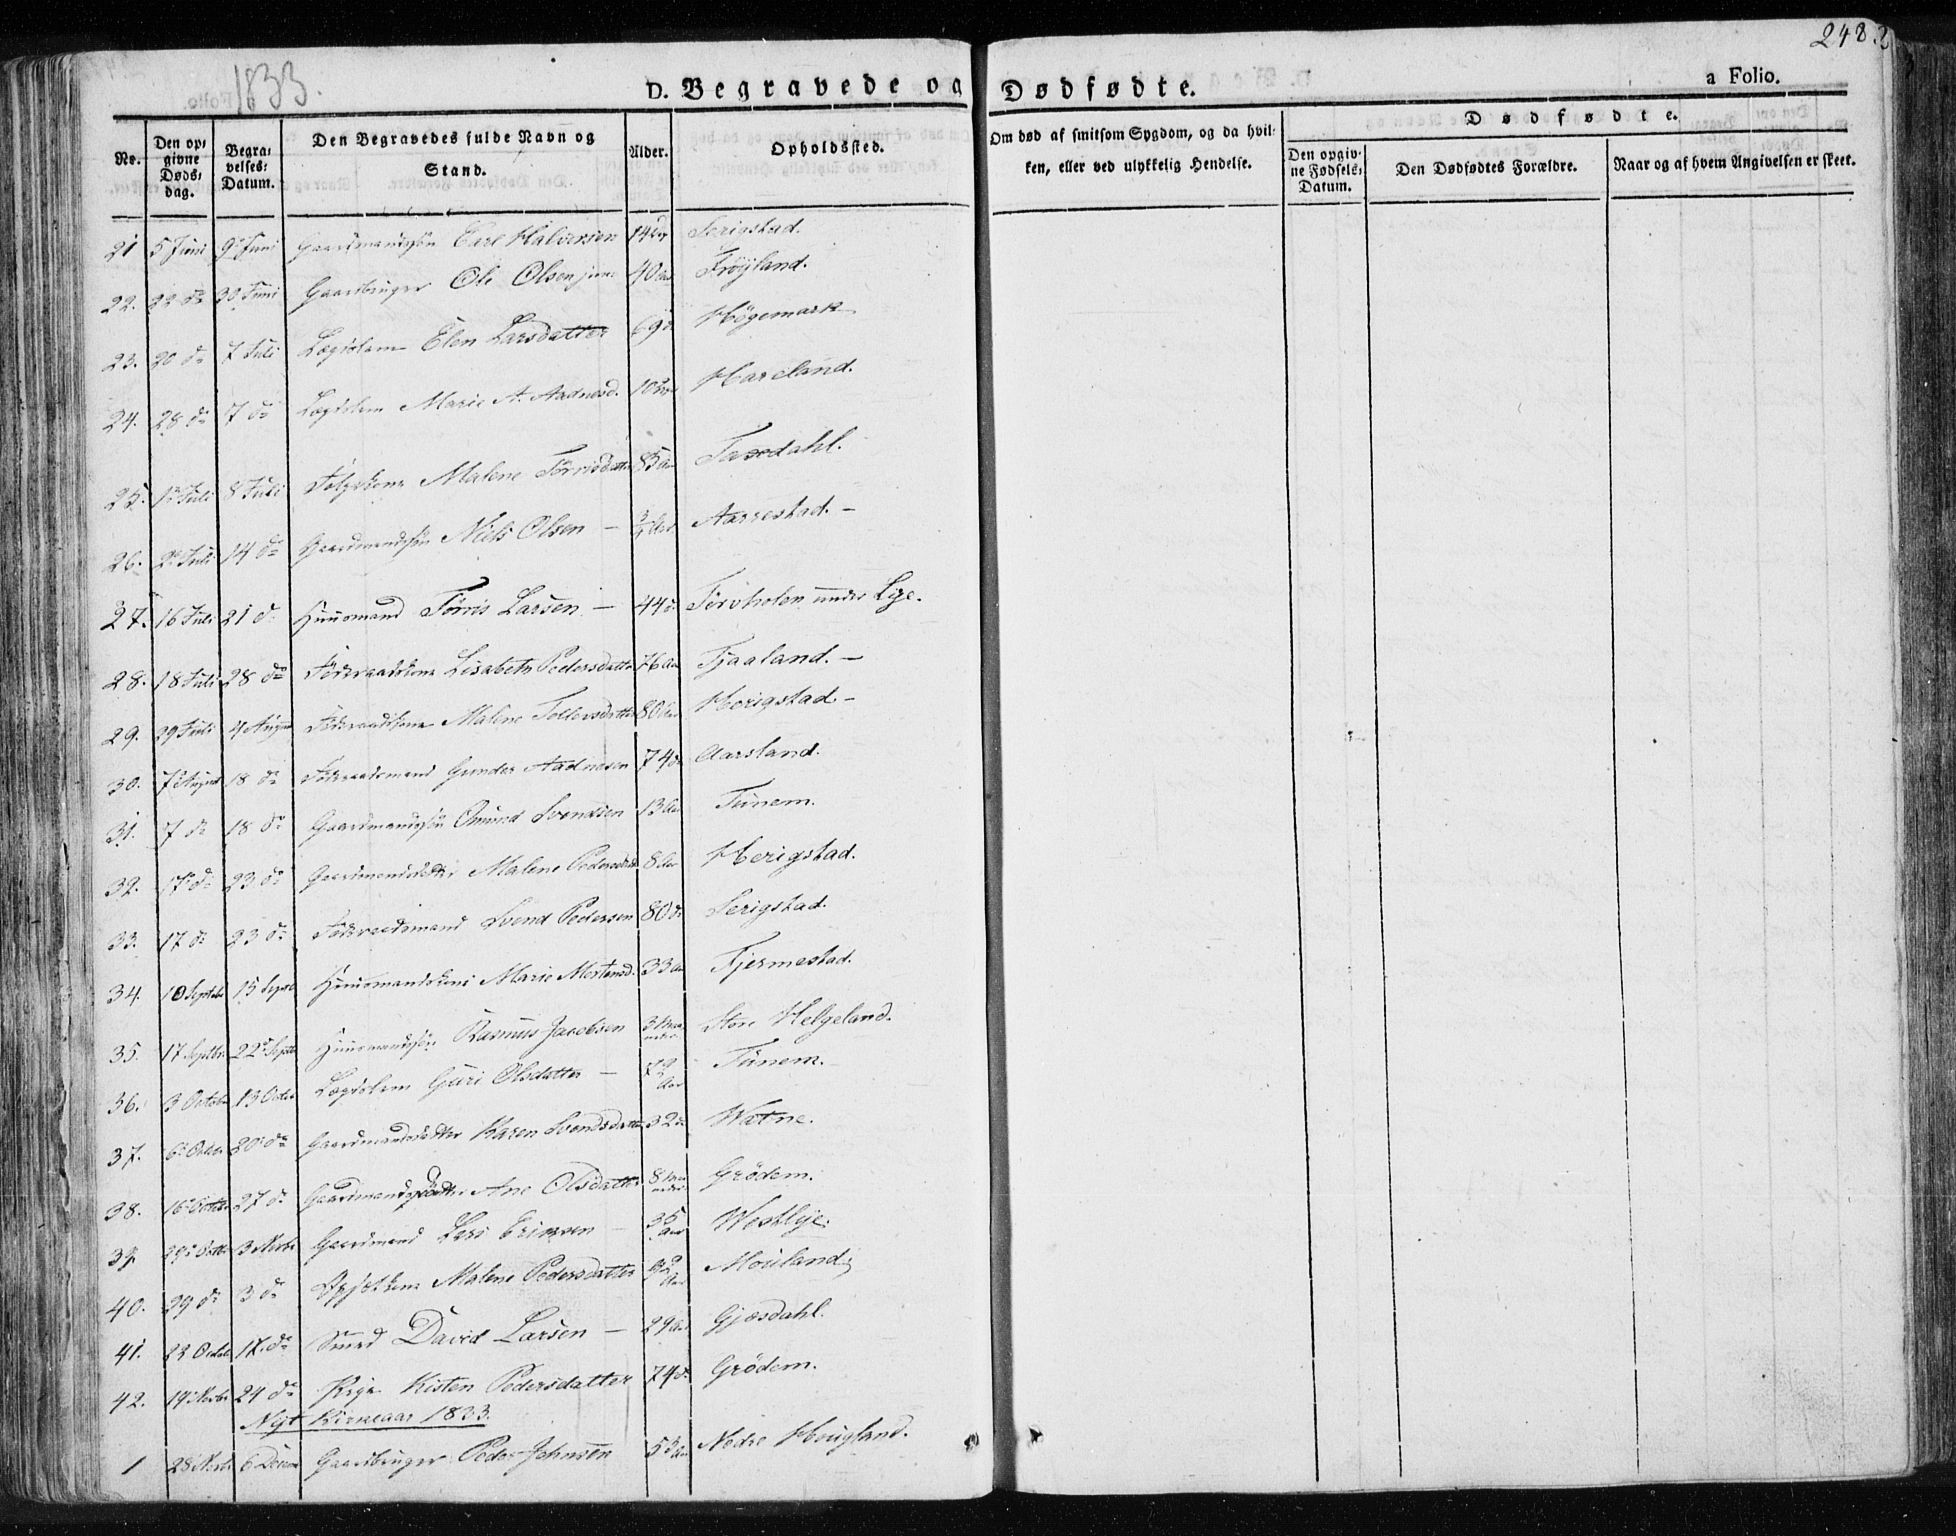 248.
1833.
D. Begravede og Dødfødte.
a Folio.
No. Den opgivne Dødsdag. Begravelses: Datum. Den Begravedes fulde Navn og Stand. Alder. Opholdssted. Om død af smitsom Sygdom, og da hvilken, eller ved ulykkelig Hendelse. Dødfødte. Den opgivne Fødsels: Datum. Den Dødfødtes Forældre. Naar og af hvem Angivelsen er skeet.
21 5 Juni 9 Juni Gaardmandssøn Halvorsen Serigstad.
22. 22 do 30 Juni Gaardbruger Ole Olsen jun. 40 Aar Frøyland.
23. 20 do 7 Juli Lægdslem Elen Larsdatter 69 Høgemark
24. 28 do 7 do Lægdslem Marie A. Aadnesd. Hareland.
25. 1 Juli 8 Juli Malene Tørrisdatter 85 Aar Taxdahl.
26. 2 Juli 14 do Gaardmandssøn Niels Olsen – 3/4 Aar Aarrestad. –
27. 16 Juli 21 d. Huusmand Tørris Larsen – 44 d. under Lye.
28. 18 Juli 28 do Föderaadskone Lisabeth Pedersdatter 76 Aar Tjaaland. –
29. 29 Juli 4 August Föderaadskone Malene Tollevsdatter 80 Aar Herigstad –
30. 7 August 18 do Föderaadsmand Gunder Aadnesen 74 do Aarsland.
31. 7 do 18 do Gaardmandssøn Omund Svendsen 13 Aar Tunem.
32. 17 do 23 do Gaardmandsdatter Malene Pedersdatter 8 Aar Herigstad.
33. 17 do 23 do Föderaadsmand Svend Pedersen 80 do Serigstad.
34. 10 Septbr 15 Septbr Huusmandskone Marie Mortensd. 33 Aar Fjermestad.
35. 17 Septbr 22 Septbr Huusmandssøn Rasmus Jacobsen 3 Maaneder Store Helgeland.
36. 3 October 13 Octob Lægdslem Guri Olsdatter – Aar Tunem.
37. 6 Octobr 20 do Gaardmandsdatter Karen Svendsdatter 32 do Watne.
38. 16 Octobr 27 do Gaardmandsdatter Ane Olsdatter 8 Maaneder Grödem.
39 29 Octbr 3 Novbr Gaardmand Lars – 35 Aar Westlye.
40. 29 do 3 do Malene Pedersdatter Aar Mouland
41. 23 Octob 17 do Smed David Larsen – 29 Aar Gjæsdahl.
42. 19 Novbr 24 do Kisten Pedersdatter 74 do Grödem.
Nyt Kirkeaar 1833.
1 28 Novbr 6 Decem Gaardbruger Peder Johnsen 53 Aar Nedre Hougland.